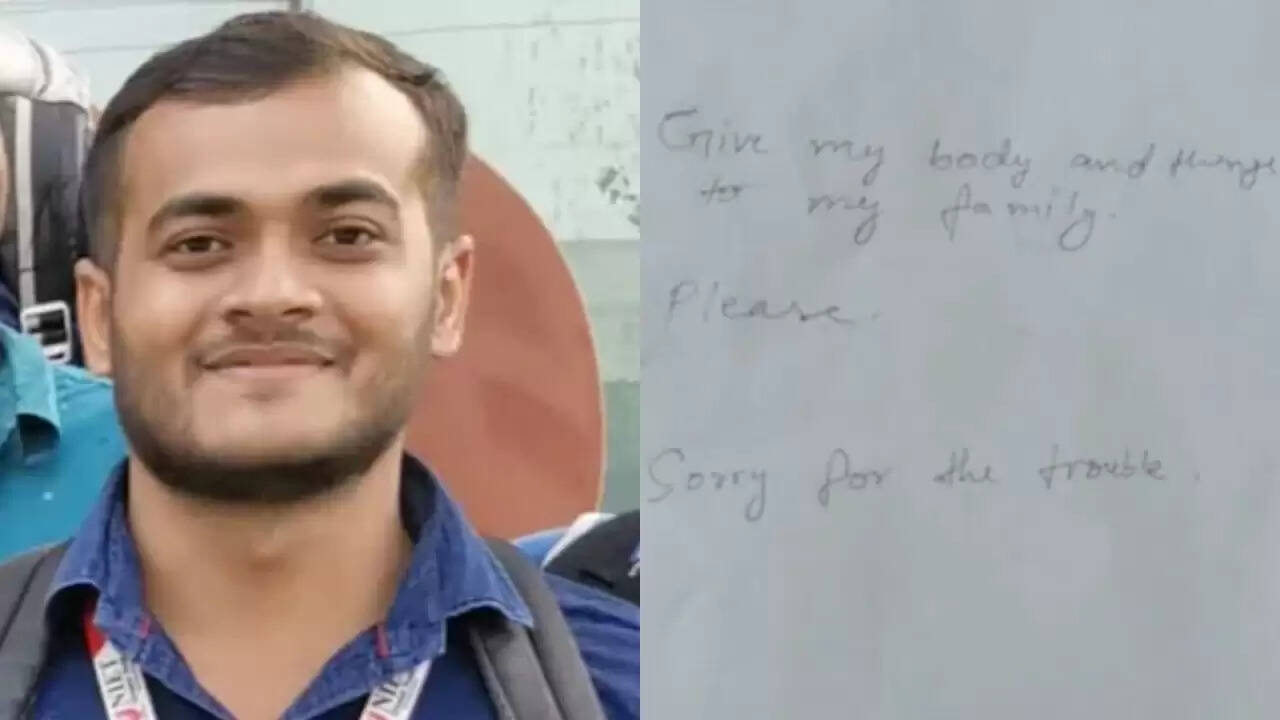 Give my body and things
to my family.
Please.
Sorry for the trouble.
NIET